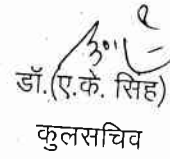 डॉ. (ए.के. सिंह)
कुलसचिव